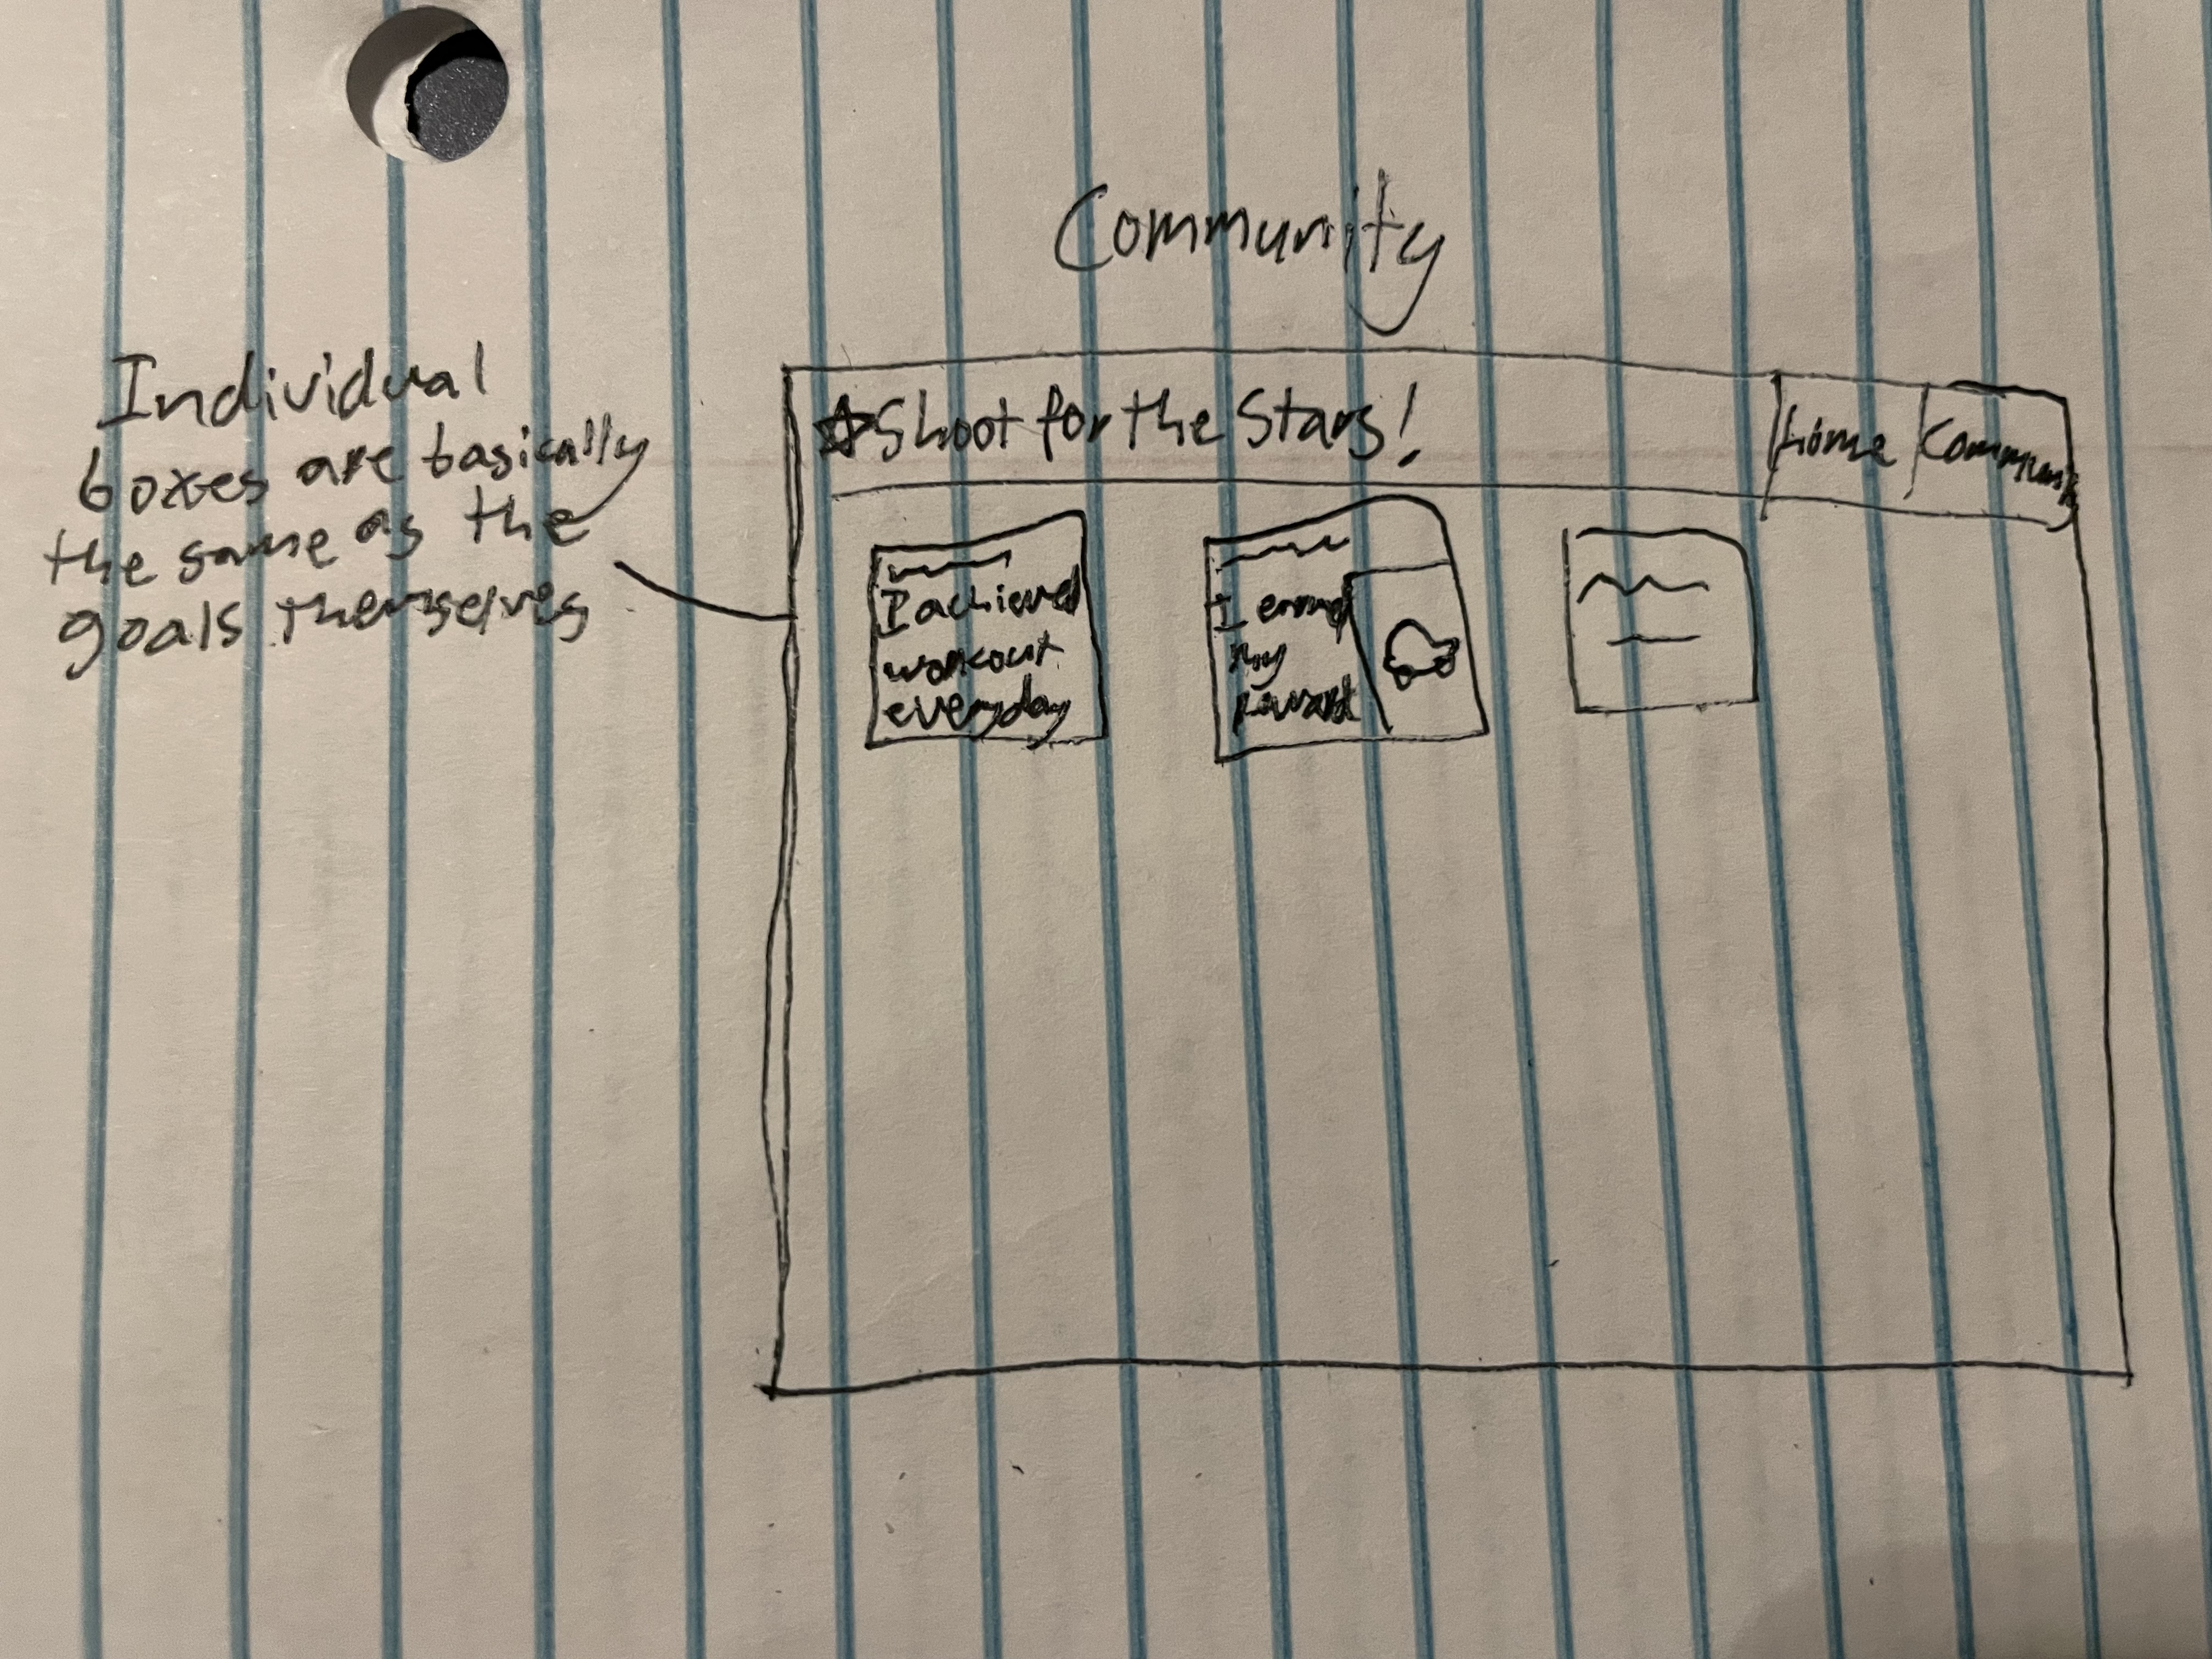 Community
Individual
boxes are basically
the same as the
goals themselves
Shoot for the Stars!
Home
Community
I achieved
workout
everyday
I earned
my
reward